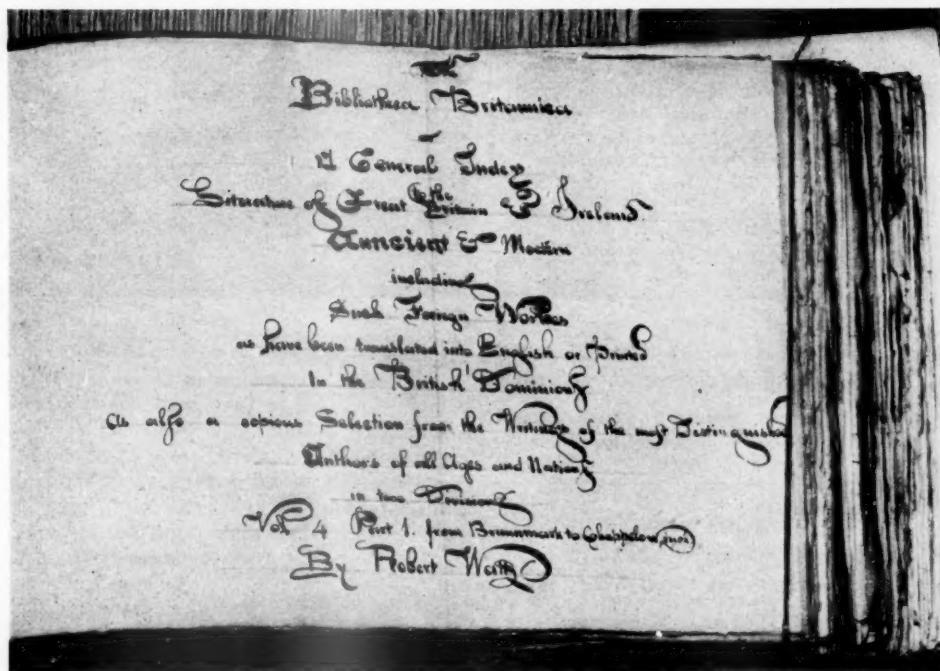 The
Bibliotheca Britannica
or
A General Index
to the
Literature of Great Britain & Ireland
Auncient & Modern
including
Such Foreign Workes
as have been translated into English or Printed
In the British Dominions
As also a copious Selection from the Writings of the most Distinguished
Authors of all Ages and Nations
in two Divisions
Vol 4 Part 1. from Brunnmark to Chappelow,
By Robert Watt